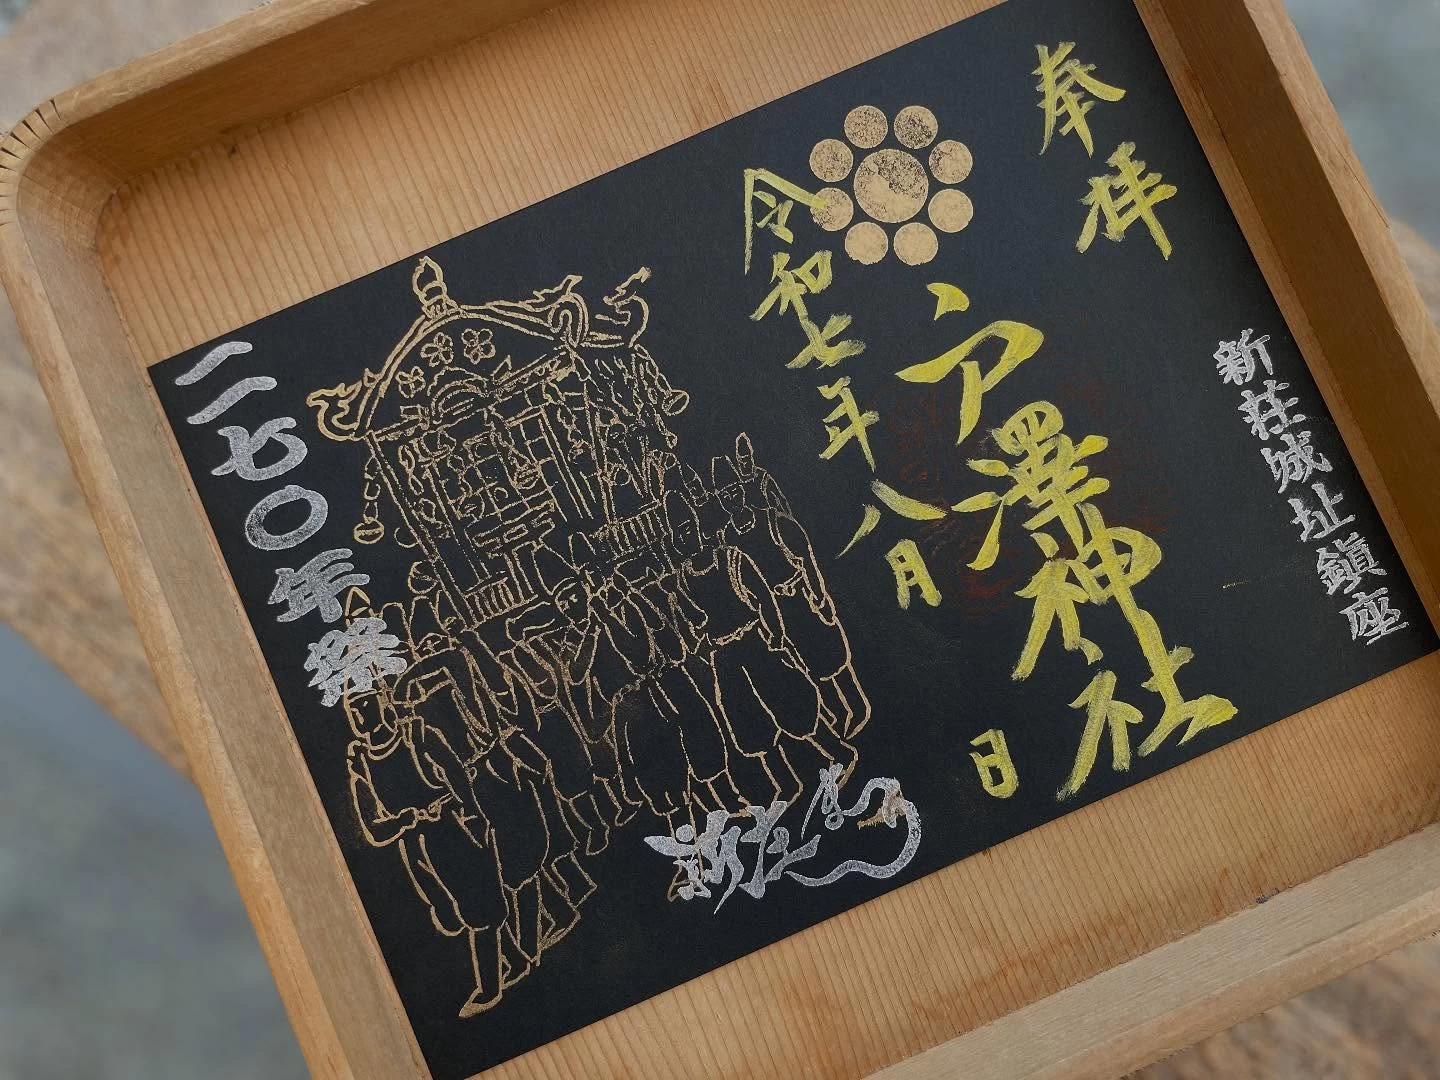 奉拝
新荘城址鎮座
戸澤神社
令和七年八月
日
新庄まつり
二七〇年祭